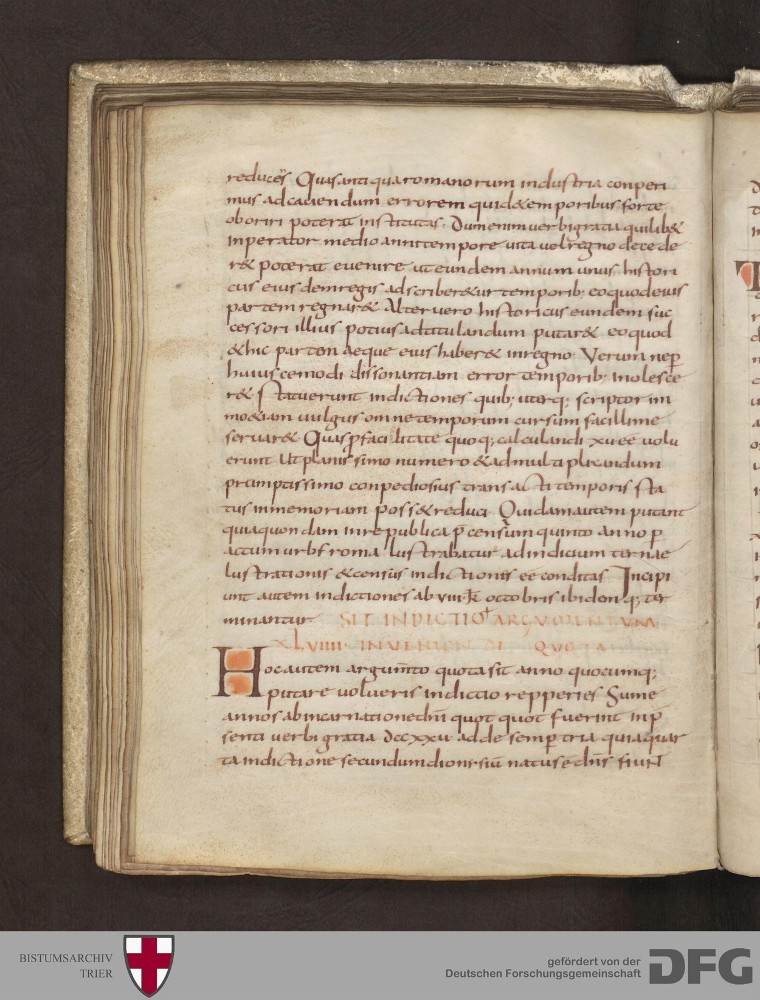 reduceris Quas antiqua romanorum industria conperi
mus ad cavendum errorem qui d& emporibus forte
oboriri poterat institutas. Dum enim verbi gratia quilib&
inperator medio anni tempore vita vel regno decede
r& poterat evenire ut eundem annum unus histori
cus eiusdem regis adscriber& ut temporib; eo quod eius
partem regnar& Alter vero historicus eundem suc
cessori illius potius adtitulandum putar& eo quod
& hic partem aeque eius haber& in regno. Verum ne p̄
huiuscemodi dissonantiam error temporib; inolesce
r& statuerunt indictiones quib; uterq; scriptor im
mo &iam vulgus omne temporum cursum facillime
servar& Quas p facilitate quoq; calculandi xv ee volu
erunt Ut planissimo numero & ad multiplicandum
promptissimo conpediosius transacti temporis sta
tus in memoriam poss& reduci. Quidam autem putant
quia quondam in re publica p censum quinto anno p
actum urbs roma lustrabatur ad indicium ternae
lustrationis & census indictionis ee conditas Incipi
unt autem indictiones ab viii k̄ octobris ibidemq; ter
minantur SIT INDICTIO ARGUMENTUM
XLVIIII INVENIENDI QUOTA
Hoc autem argumto quota sit anno quocumq;
putare volueris indictio repperies Sume
annos ab incarnatione dni quot quot fuerint in p
senti verbi gratia dccxxv adde semp tria quia quar
ta indictione secundum dionisiu natus e dns fiunt
BISTUMSARCHIV
TRIER
gefördert von der
Deutschen Forschungsgemeinschaft
DFG